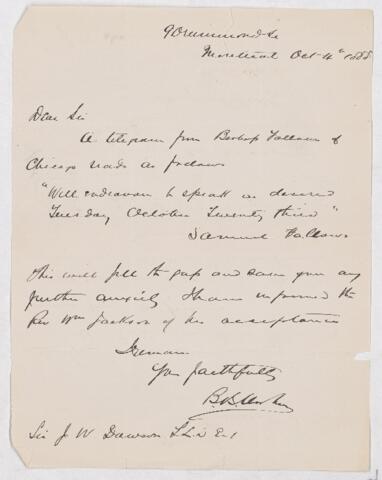 9 Drummond St
Montreal Oct 4th 1888
Dear Sir
A telegram from Bishop Fallows of
Chicago reads as follows
"Will endeavour to speak as desired
Tuesday October Twenty third"
Samuel Fallows
This will fill the gap and save you any
further anxiety I have informed the
Rev Wm Jackson of his acceptance
I remain
Yours faithfully
B B
Sir J W Dawson LLD